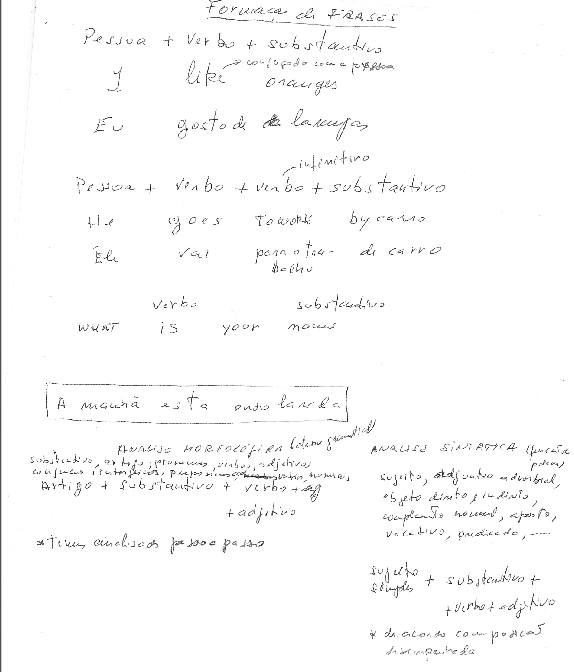 Formaçao de FRASES
Pessoa + verbo + substantivo
conjugado com a pessoa
I like oranges
Eu gosto de laranjas
infinitivo
Pessoa + verbo + verbo + substantivo
He goes to work by carro
Ele vai para o tra-
balho de carro
verbo substantivo
WHAT is your name
A manhã esta ensolarada
ANALISE MORFOLÓGICA (classe gramatical)
substantivo, artigo, pronomes, verbos, adjetivos
numerais
Artigo + substantivo + verbo +
+ adjetivo
passo a passo
ANALISE SINTATICA (função
sujeito, adjunto adverbial,
objeto direto e indireto,
complento nominal, aposto,
vocativo, predicado, .....
sujeito
simples + substantivo +
+ verbo + adjetivo
* de acordo com posicao
desempenhada